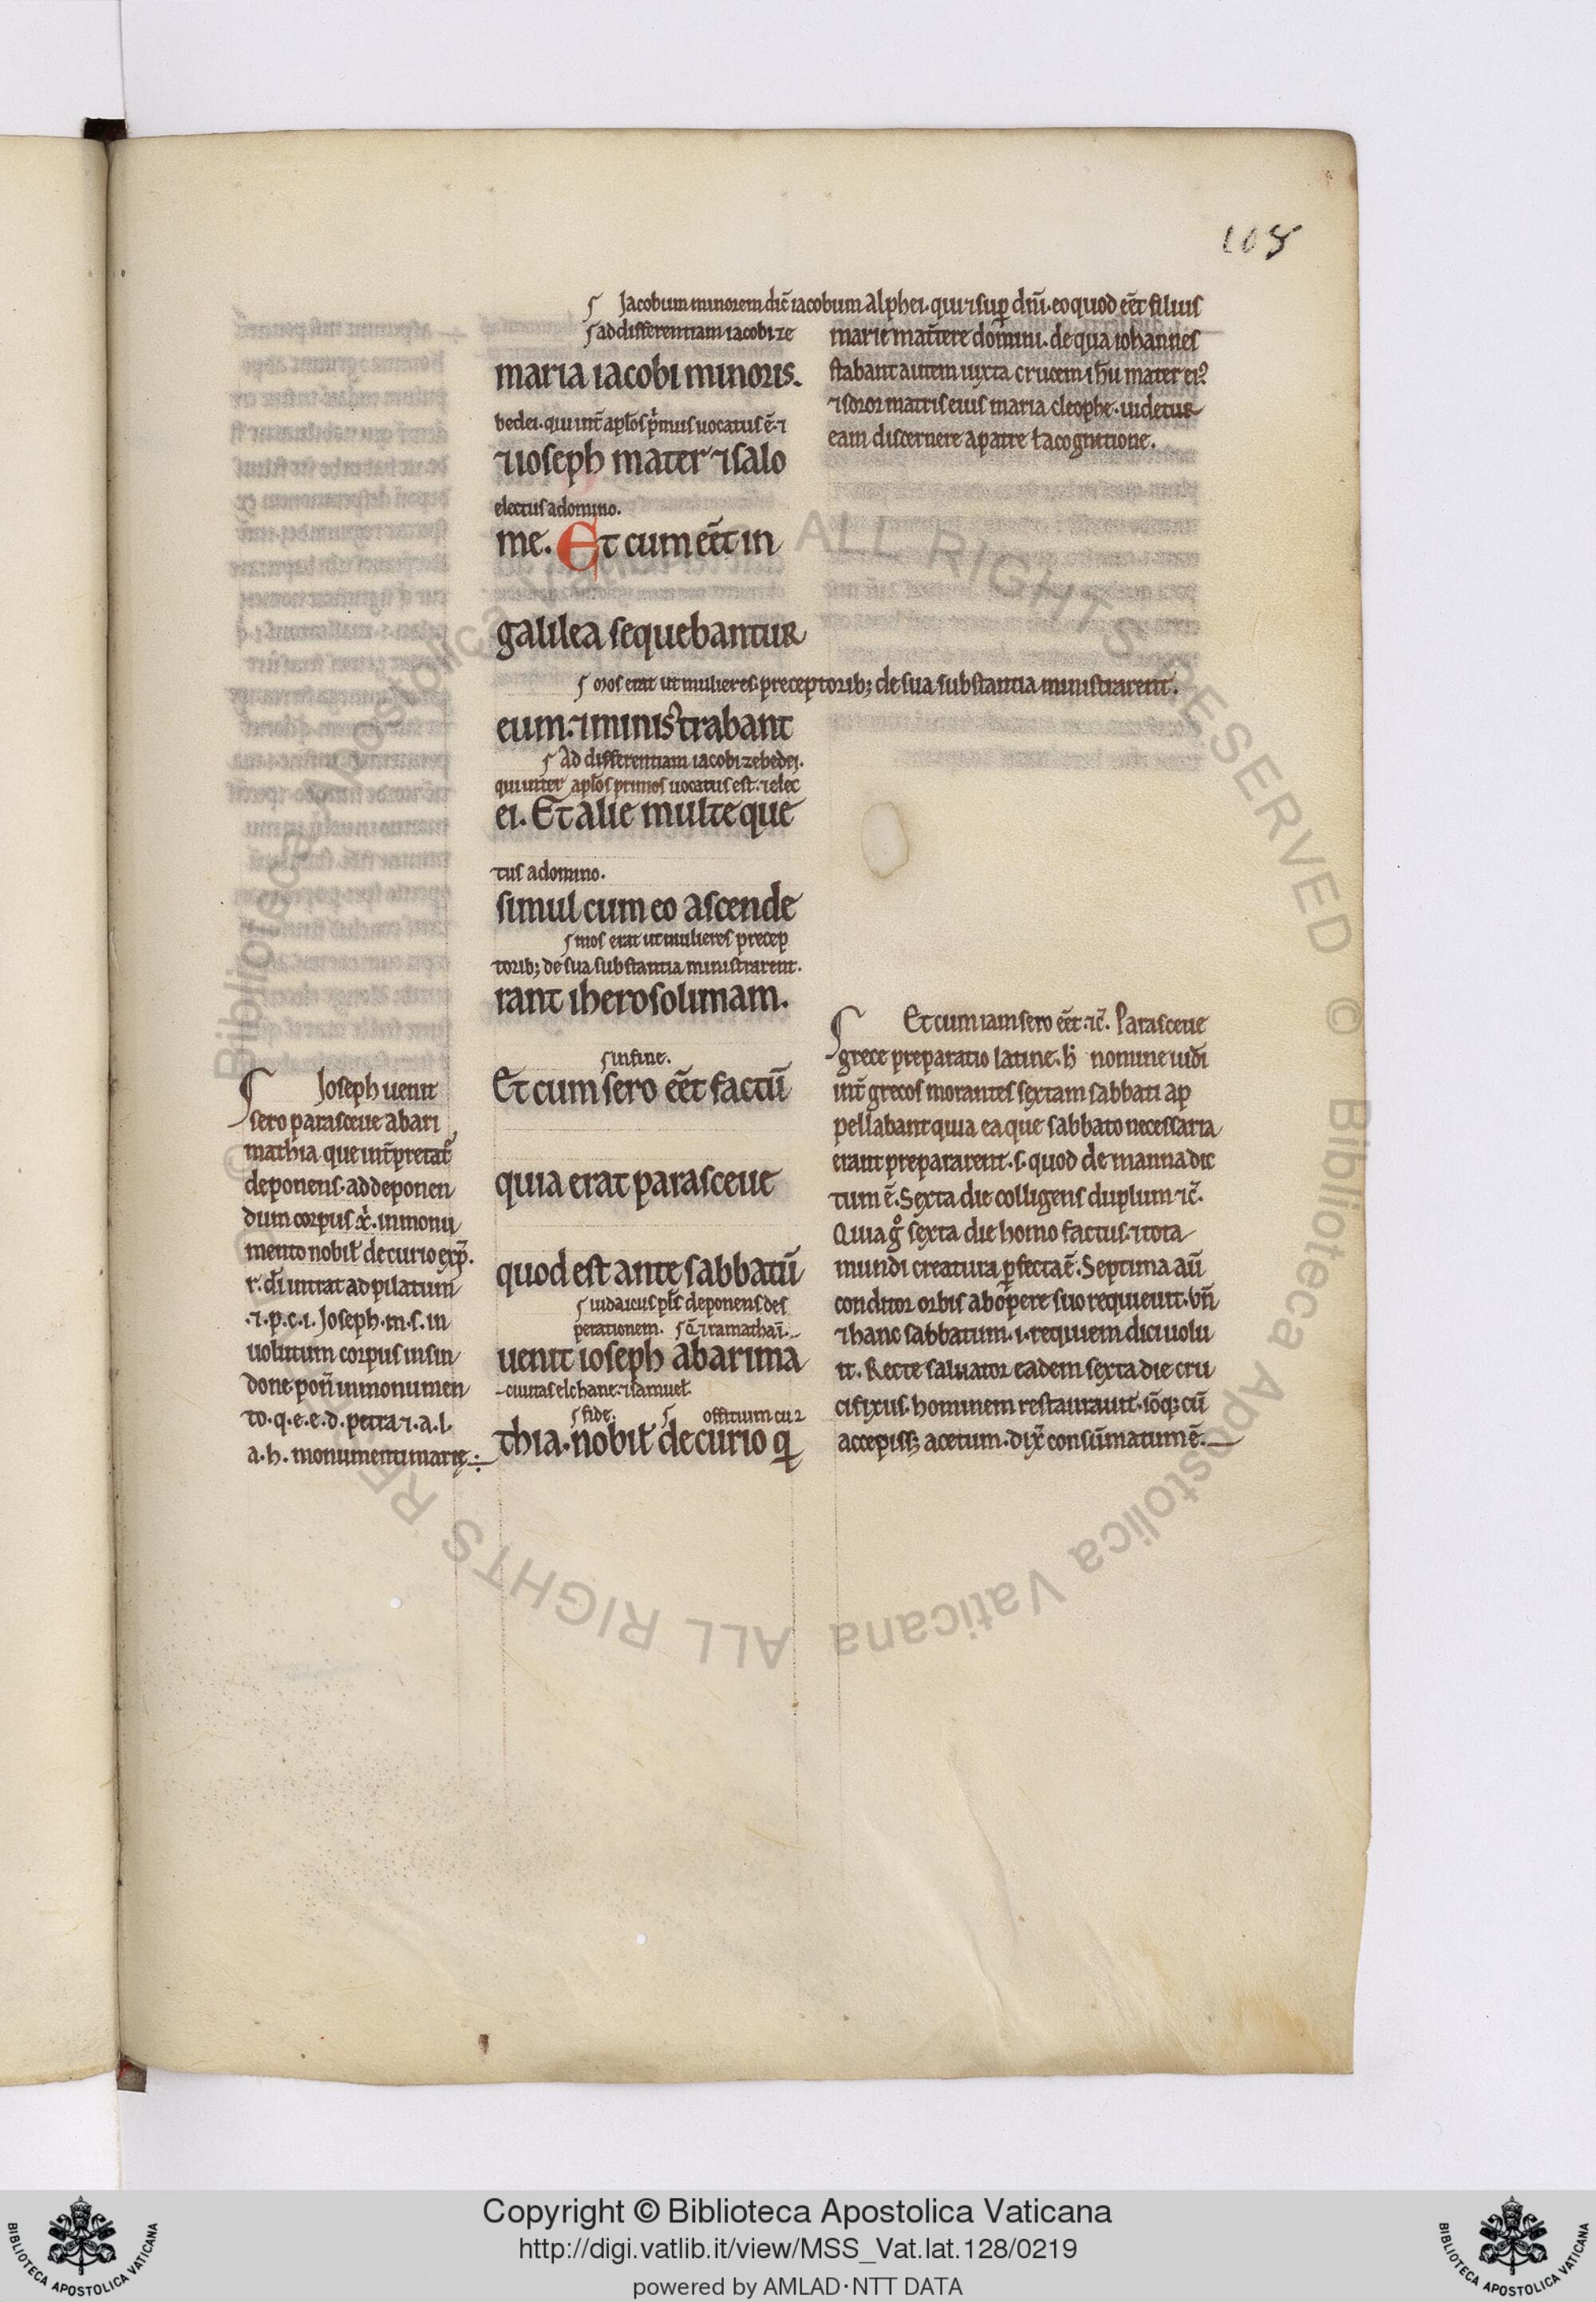 108
Jacobum minorem dic̄ iacobum alphei. qui ⁊ sup̄ dn̄i. eo quod eēt filius
ad differentiam iacobi ze
marie mat̄tere domini. de qua iohannes
maria iacobi minoris.
stabant autem iuxta crucem ihu mater ei?
bedei. qui int̄ ap̄los p̄mus uocatus ē. ⁊
⁊ soror matris eius maria cleophe. uidetur
⁊ ioseph mater ⁊ salo
eam discernere a patre ł a cognitione.
electus a domino.
me. Et cum eēt in
galilea sequebantur
mos erat ut mulieres preceptorib; de sua substantia ministrarent.
eum. ⁊ ministrabant
Ad differentiam iacobi zebedei.
qui inter ap̄los primos uocatus est. ⁊ elec
ei. Et alie multe que
tus a domino.
simul cum eo ascende
mos erat ut mulieres precep
torib; de sua substantia ministrarent.
rant iherosolimam.
in fine.
Et cum sero eēt factū
quia erat parasceue
quod est ante sabbatū
iudaicus pl̄s deponens des
perationem. q̄ ⁊ ramathaī.
uenit ioseph abarima
ciuitas elchane. ⁊ samuel̄.
fide. offitium cu2
thia. nobil̄ decurio q
Joseph uenit
sero parasceue abari
mathia que int̄pretat̄
deponens. ad deponen
dum corpus x̄. in monu
mento nobil̄ decurio exp̄.
r. d̄i intrat ad pilatum
.⁊. p. c. i. Joseph. m. s. in
uolutum corpus in sin
done. pon̄ in monumen
to. q. e. e. d. petra ⁊. a. l.
a. h. monumenti marię.
Et cum iam sero eēt. ⁊c̄. Parasceue
grece preparatio latine. h̄ nomine iud̄i
int̄ grecos morantes sextam sabbati ap
pellabant quia ea que sabbato necessaria
erant prepararent. s. quod de manna dic
tum ē. Sexta die colligens duplum ⁊c̄.
Quia g̊ sexta die homo factus. ⁊ tota
mundi creatura p̄fecta ē. Septima aū
conditor orbis ab opere suo requieuit. vn̄
⁊ hanc sabbatum. i. requiem dici uolu
it. Recte saluator eadem sexta die cru
cifixus. hominem restaurauit. iōq; cū
accepiss; acetum. dix̄ consūmatum ē.
Copyright © Biblioteca Apostolica Vaticana
http://digi.vatlib.it/view/MSS_Vat.lat.128/0219
powered by AMLAD·NTT DATA
BIBLIOTECA APOSTOLICA VATICANA
BIBLIOTECA APOSTOLICA VATICANA
© Biblioteca Apostolica Vaticana ALL RIGHTS RESERVED © Biblioteca Apostolica Vaticana ALL RIGHTS RE